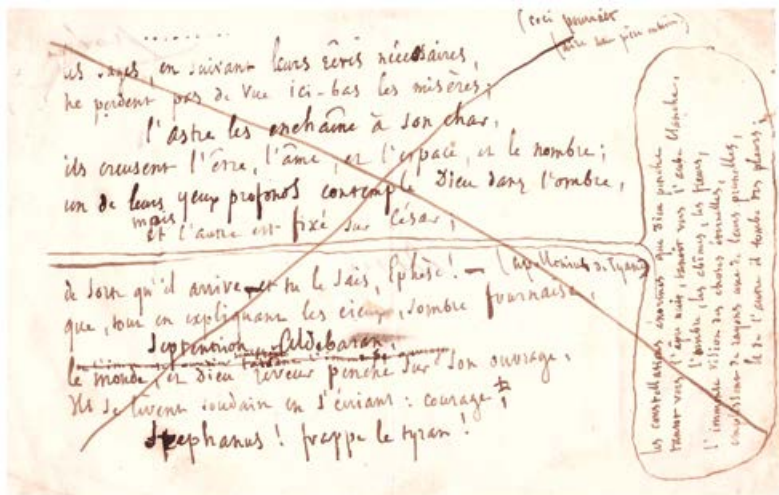 (ceci pourrait
faire une pièce
les sages, en suivant leurs rêves nécessaires,
ne perdent pas de vue ici-bas les misères ;
l'astre les enchaîne à son char,
ils creusent l'être, l'âme, et l'espace, et le nombre ;
un de leurs yeux profonds contemple Dieu dans l'ombre,
mais
et l'autre est fixé sur César ;
de sorte qu'il arrive, et tu le sais, Ephèse ! — (apollonius de Tyane)
que, tout en expliquant les cieux, sombre fournaise,
Septentrion, Aldebaran,
le monde et Dieu rêveur penché sur son ouvrage,
Ils se lèvent soudain en s'écriant : courage,
Stephanus ! frappe le tyran !
les constellations énormes que Dieu penche
tantôt vers l'âpre nuit, tantôt vers l'aube blanche,
l'ombre, les abîmes, les fleurs,
l'immense vision des choses éternelles,
emplissent de rayons une de leurs prunelles,
et de l'autre il tombe des pleurs ;